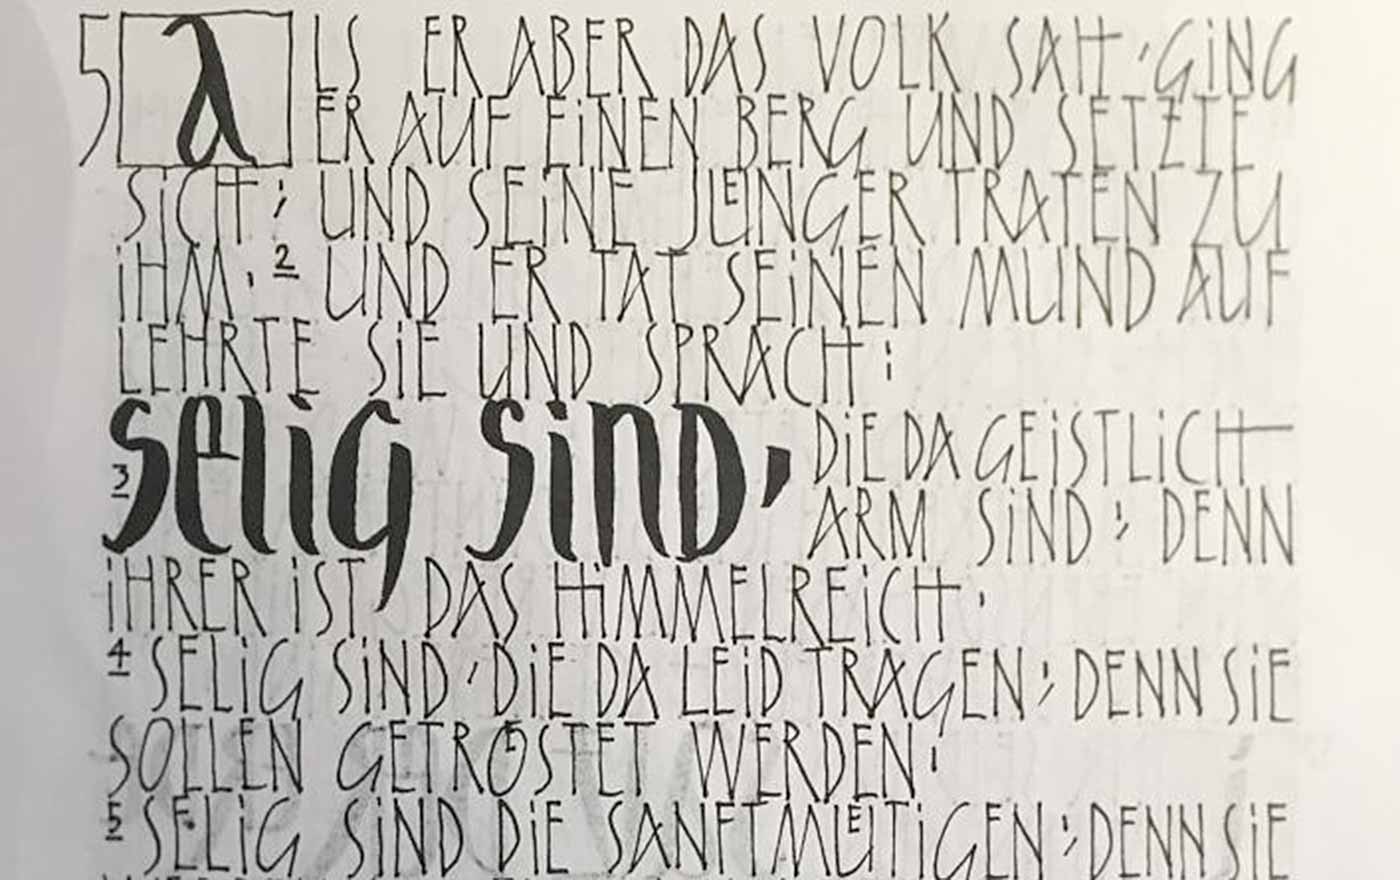 5 ALS ER ABER DAS VOLK SAH, GiNG
ER AUF EiNEN BERG UND SETZTE
SiCH; UND SEiNE JUENGER TRATEN ZU
iHM. 2 UND ER TAT SEiNEN MUND AUF
LEHRTE SiE UND SPRACH:
3 SELiG SiND, DiE DA GEiSTLiCH
ARM SiND; DENN
iHRER iST DAS HiMMELREiCH.
4 SELiG SiND, DiE DA LEiD TRAGEN; DENN SiE
SOLLEN GETROESTET WERDEN.
5 SELiG SiND DiE SANFTMUETiGEN; DENN SiE